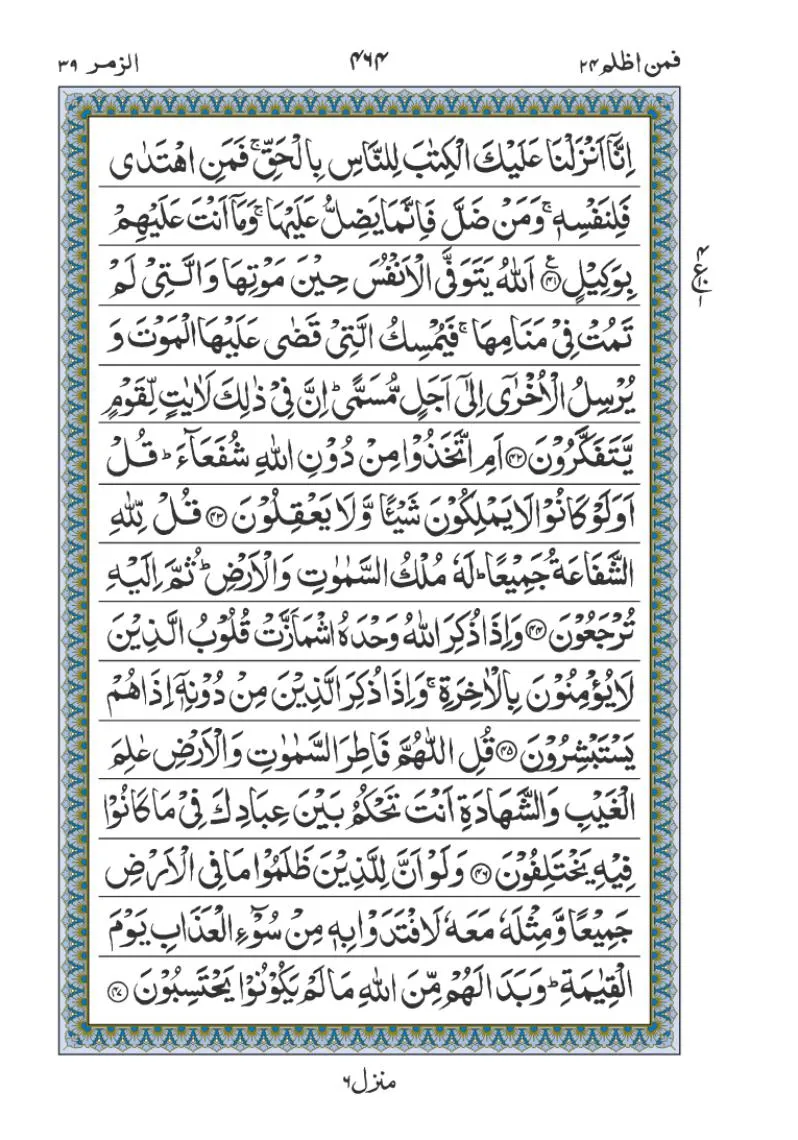 فمن اظلم ۲۴
۴۶۴
الزمر ۳۹
اِنَّاۤ اَنْزَلْنَا عَلَيْكَ الْكِتٰبَ لِلنَّاسِ بِالْحَقِّ ۚ فَمَنِ اهْتَدٰى
فَلِنَفْسِهٖ ۚ وَمَنْ ضَلَّ فَاِنَّمَا يَضِلُّ عَلَيْهَا ۚ وَمَاۤ اَنْتَ عَلَيْهِمْ
بِوَكِيْلٍ ﴿۴۱﴾ ع اَللّٰهُ يَتَوَفَّى الْاَنْفُسَ حِيْنَ مَوْتِهَا وَالَّتِيْ لَمْ
تَمُتْ فِيْ مَنَامِهَا ۚ فَيُمْسِكُ الَّتِيْ قَضٰى عَلَيْهَا الْمَوْتَ وَ
يُرْسِلُ الْاُخْرٰۤى اِلٰۤى اَجَلٍ مُّسَمًّى ؕ اِنَّ فِيْ ذٰلِكَ لَاٰيٰتٍ لِّقَوْمٍ
يَّتَفَكَّرُوْنَ ﴿۴۲﴾ اَمِ اتَّخَذُوْا مِنْ دُوْنِ اللّٰهِ شُفَعَآءَ ؕ قُلْ
اَوَلَوْ كَانُوْا لَا يَمْلِكُوْنَ شَيْـًٔا وَّلَا يَعْقِلُوْنَ ﴿۴۳﴾ قُلْ لِّلّٰهِ
الشَّفَاعَةُ جَمِيْعًا ؕ لَهٗ مُلْكُ السَّمٰوٰتِ وَالْاَرْضِ ؕ ثُمَّ اِلَيْهِ
تُرْجَعُوْنَ ﴿۴۴﴾ وَاِذَا ذُكِرَ اللّٰهُ وَحْدَهُ اشْمَاَزَّتْ قُلُوْبُ الَّذِيْنَ
لَا يُؤْمِنُوْنَ بِالْاٰخِرَةِ ۚ وَاِذَا ذُكِرَ الَّذِيْنَ مِنْ دُوْنِهٖۤ اِذَا هُمْ
يَسْتَبْشِرُوْنَ ﴿۴۵﴾ قُلِ اللّٰهُمَّ فَاطِرَ السَّمٰوٰتِ وَالْاَرْضِ عٰلِمَ
الْغَيْبِ وَالشَّهَادَةِ اَنْتَ تَحْكُمُ بَيْنَ عِبَادِكَ فِيْ مَا كَانُوْا
فِيْهِ يَخْتَلِفُوْنَ ﴿۴۶﴾ وَلَوْ اَنَّ لِلَّذِيْنَ ظَلَمُوْا مَا فِى الْاَرْضِ
جَمِيْعًا وَّمِثْلَهٗ مَعَهٗ لَافْتَدَوْا بِهٖ مِنْ سُوْٓءِ الْعَذَابِ يَوْمَ
الْقِيٰمَةِ ؕ وَبَدَا لَهُمْ مِّنَ اللّٰهِ مَا لَمْ يَكُوْنُوْا يَحْتَسِبُوْنَ ﴿۴۷﴾
۴
ع
۱۰
۱
منزل ۶